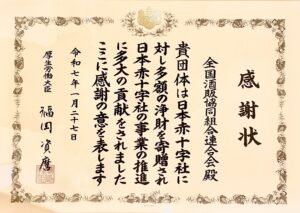 感謝状
全国酒販協同組合連合会殿
貴団体は日本赤十字社に
対し多額の浄財を寄贈され
日本赤十字社の事業の推進
に多大の貢献をされました
ここに感謝の意を表します
令和七年一月二十七日
厚生労働大臣
福岡資麿